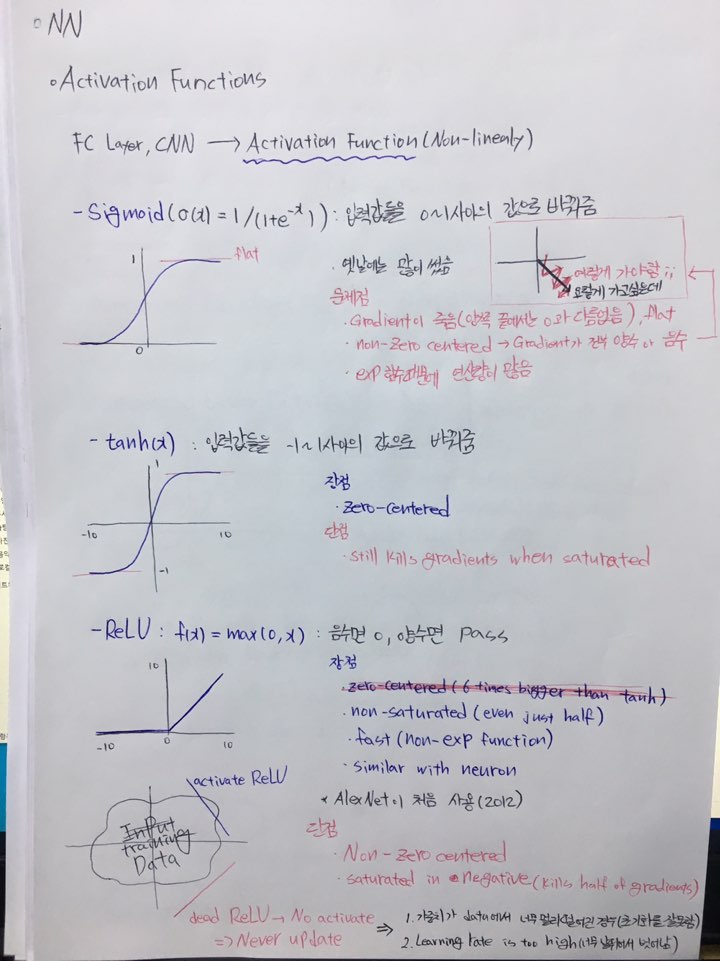 ◦ NN
◦ Activation Functions
FC Layer, CNN → Activation Function (Non-linealy)
- Sigmoid (σ(x) = 1/(1+e^-x)) : 입력값들을 0~1사이의 값으로 바꿔줌
1
flat
0
· 옛날에는 많이 썼음
이렇게 가야함;;
요렇게 가고싶은데
문제점
· Gradient이 죽음(양쪽 끝에서는 0과 다름없음), flat
· non-zero centered → Gradient가 전부 양수 or 음수
· exp 함수때문에 연산량이 많음
- tanh(x) : 입력값들을 -1~1사이의 값으로 바꿔줌
1
-10
10
-1
장점
· zero-centered
단점
· still kills gradients when saturated
- ReLU : f(x) = max(0, x) : 음수면 0, 양수면 pass
10
-10
0
10
장점
· zero-centered (6 times bigger than tanh)
· non-saturated (even just half)
· fast (non-exp function)
· similar with neuron
* AlexNet이 처음 사용 (2012)
단점
· Non-zero centered
· saturated in negative (kills half of gradients)
activate ReLU
Input
training
Data
dead ReLU → No activate
⇒ Never update
⇒ 1. 가중치가 data에서 너무 멀리 떨어진 경우(초기화를 잘못함)
2. Learning rate is too high (너무 날뛰어서 벗어남)